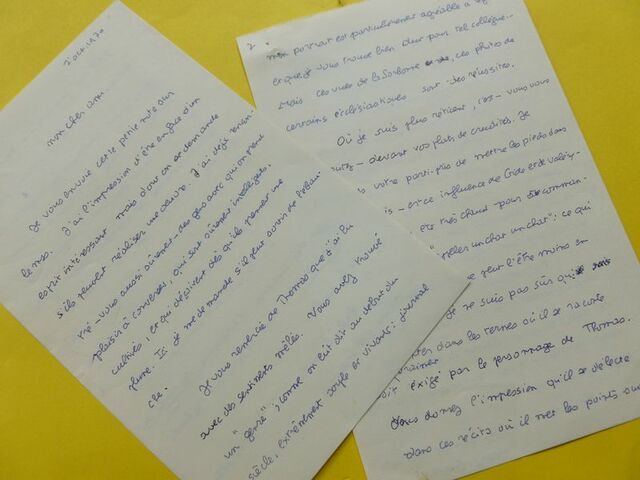 2 oct. 1970
mon cher ami.
Je vous envoie cette petite note sur
le ms. J'ai l'impression d'être en face d'un
esprit intéressant mais dont on se demande
s'ils peuvent réaliser une œuvre. J'ai déjà rencon
tré - vous aussi sûrement - des gens avec qui on prend
plaisir à converser, qui sont sûrement intelligents,
cultivés, et qui déçoivent dès qu'ils prennent une
plume. Ici je me demande s'il peut sortir de
cle.
Je vous remercie de Thomas que j'ai lu
avec des sentiments mêlés. Vous avez trouvé
un "genre", comme on eût dit au début du
siècle, extrêmement souple et vivant: journal
2.
mon portrait est particulièrement agréable
et que je vous trouve bien dur pour tel collègue.
Mais ces vues de la Sorbonne ces photos de
certains ecclésiastiques sont des réussites.
Où je suis plus réticent, c'est - vous vous
devant vos plats de crudités. Je
votre parti-pris de mettre les pieds dans
est-ce influence de Gide et de
été très chaud pour
appeler un chat un chat"; ce qui
peut l'être moins en
Je ne suis pas sûr qui
dans les termes où il se raconte
soit exigé par le personnage de Thomas.
Vous donnez l'impression qu'il se délecte
dans ces récits où il met les points sur